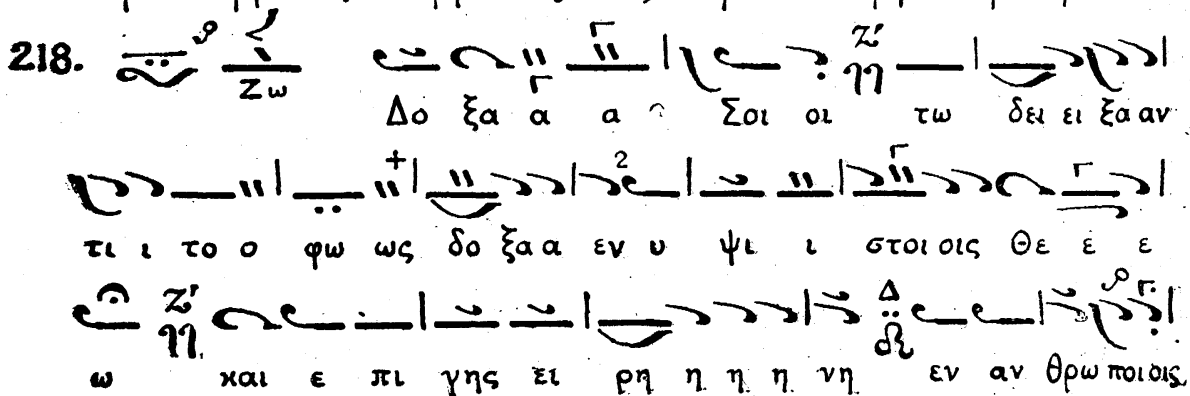 218. Ζω Ζ'
Δο ξα α α Σοι οι τω δει ει ξα αν
τι ι το ο φω ως δο ξα α εν υ ψι ι στοι οις Θε ε ε
ω Ζ' και ε πι γης ει ρη η η η νη Δ εν αν θρω ποι οις